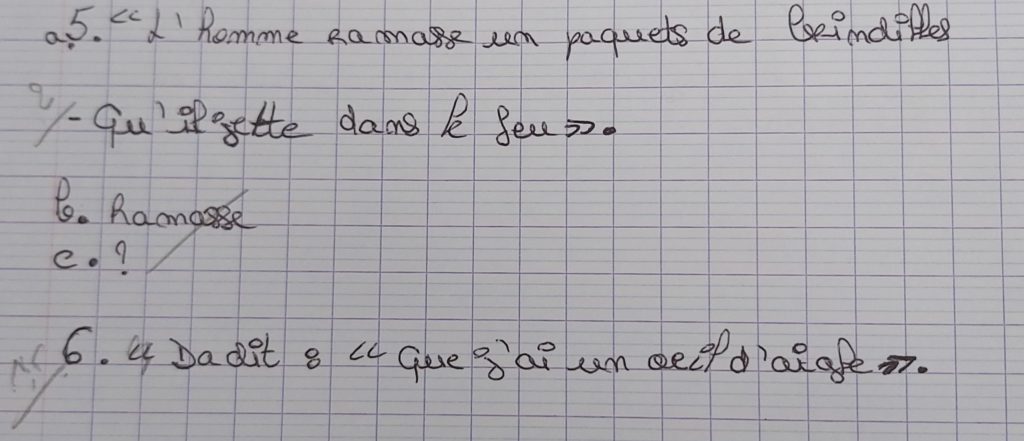 a.5. « L'homme ramasse un paquets de brindilles
- Qu'il jette dans le feu ».
b. Ramasse
c. ?
6. 4 Dadit : « Que j'ai un oeil d'aigle ».